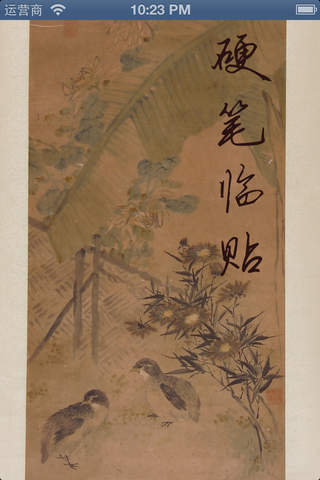 运营商 10:23 PM
硬笔临贴